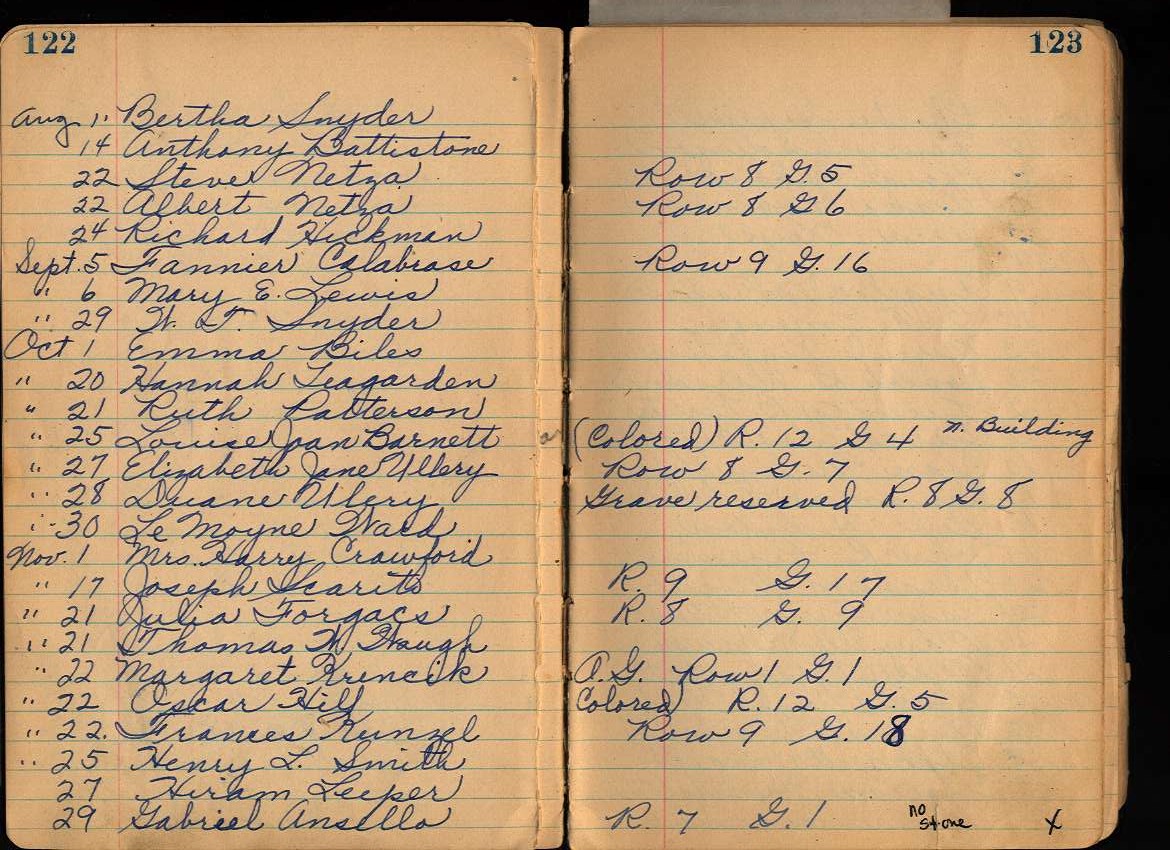 122
Aug 1. Bertha Snyder
14 Anthony Battistone
22 Steve Netza
22 Albert Netza
24 Richard Hickman
Sept. 5 Fannier Calabrase
" 6 Mary E. Lewis
" 29 W. T. Snyder
Oct 1 Emma Biles
" 20 Hannah Teagarden
" 21 Ruth Patterson
" 25 Louise Joan Barnett
" 27 Elizabeth Jane Ullery
" 28 Duane Ullery
" 30 Le Moyne Ward
Nov. 1 Mrs. Harry Crawford
" 17 Joseph Scarito
" 21 Julia Forgacs
" 21 Thomas W Waugh
" 22 Margaret Krencik
" 22 Oscar Hill
" 22. Frances Kunzel
" 25 Henry L. Smith
27 Hiram Leeper
29 Gabriel Ansello
123
Row 8 G.5
Row 8 G6
Row 9 G.16
(Colored) R.12 G 4 n. Building
Row 8 G.7
Grave reserved R.8 G.8
R.9 G.17
R.8 G.9
A.G. Row 1 G.1
Colored) R.12 G.5
Row 9 G.18
R.7 G.1 no stone X